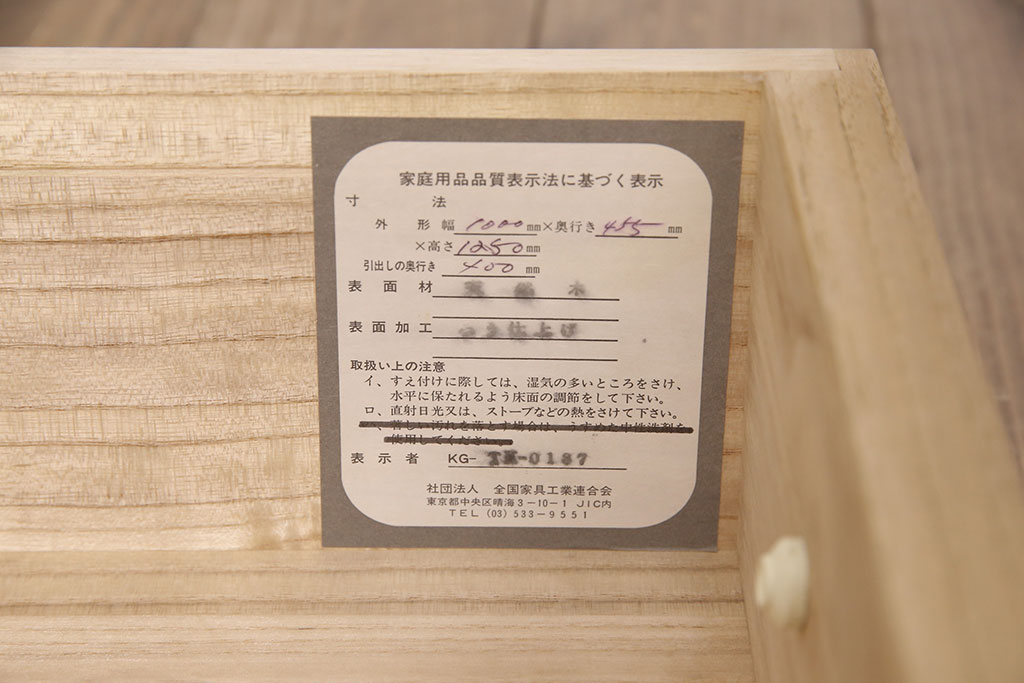 家庭用品品質表示法に基づく表示
寸 法
外 形 幅 1000mm×奥行き 455 mm
×高さ 1250mm
引出しの奥行き 400 mm
表 面 材 木
表面加工 仕上げ
取扱い上の注意
イ、すえ付けに際しては、湿気の多いところをさけ、
水平に保たれるよう床面の調節をして下さい。
ロ、直射日光又は、ストーブなどの熱をさけて下さい。
ハ、著しい汚れを落とす場合は、うすめた中性洗剤を
使用してください。
表 示 者 KG- TK-0187
社団法人 全国家具工業連合会
東京都中央区晴海3-10-1 JIC内
TEL (03) 533-9551